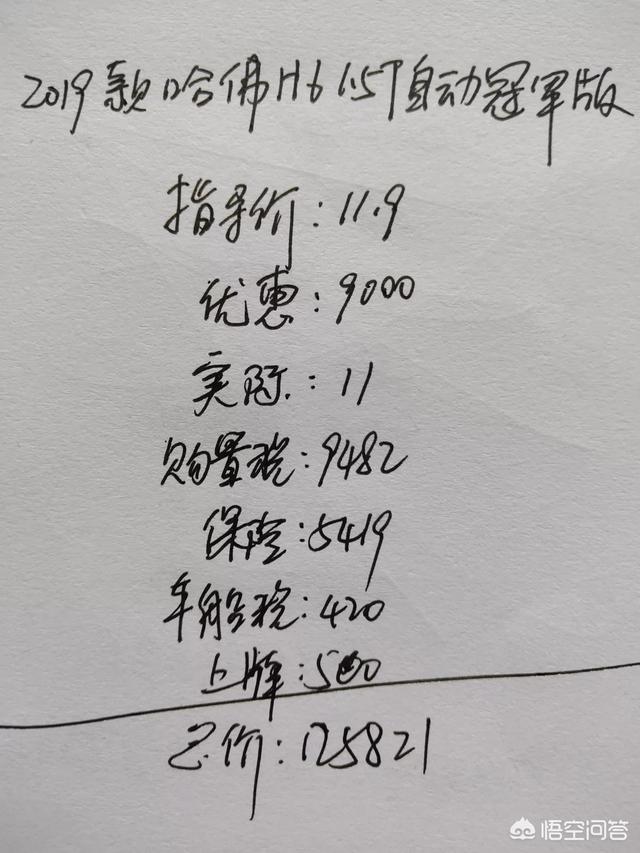 2019款哈佛H6 1.5T自动冠军版
指导价:11.9
优惠:9000
实际:11
购置税:9482
保险:5419
车船税:420
上牌:500
总价:125821
悟空问答